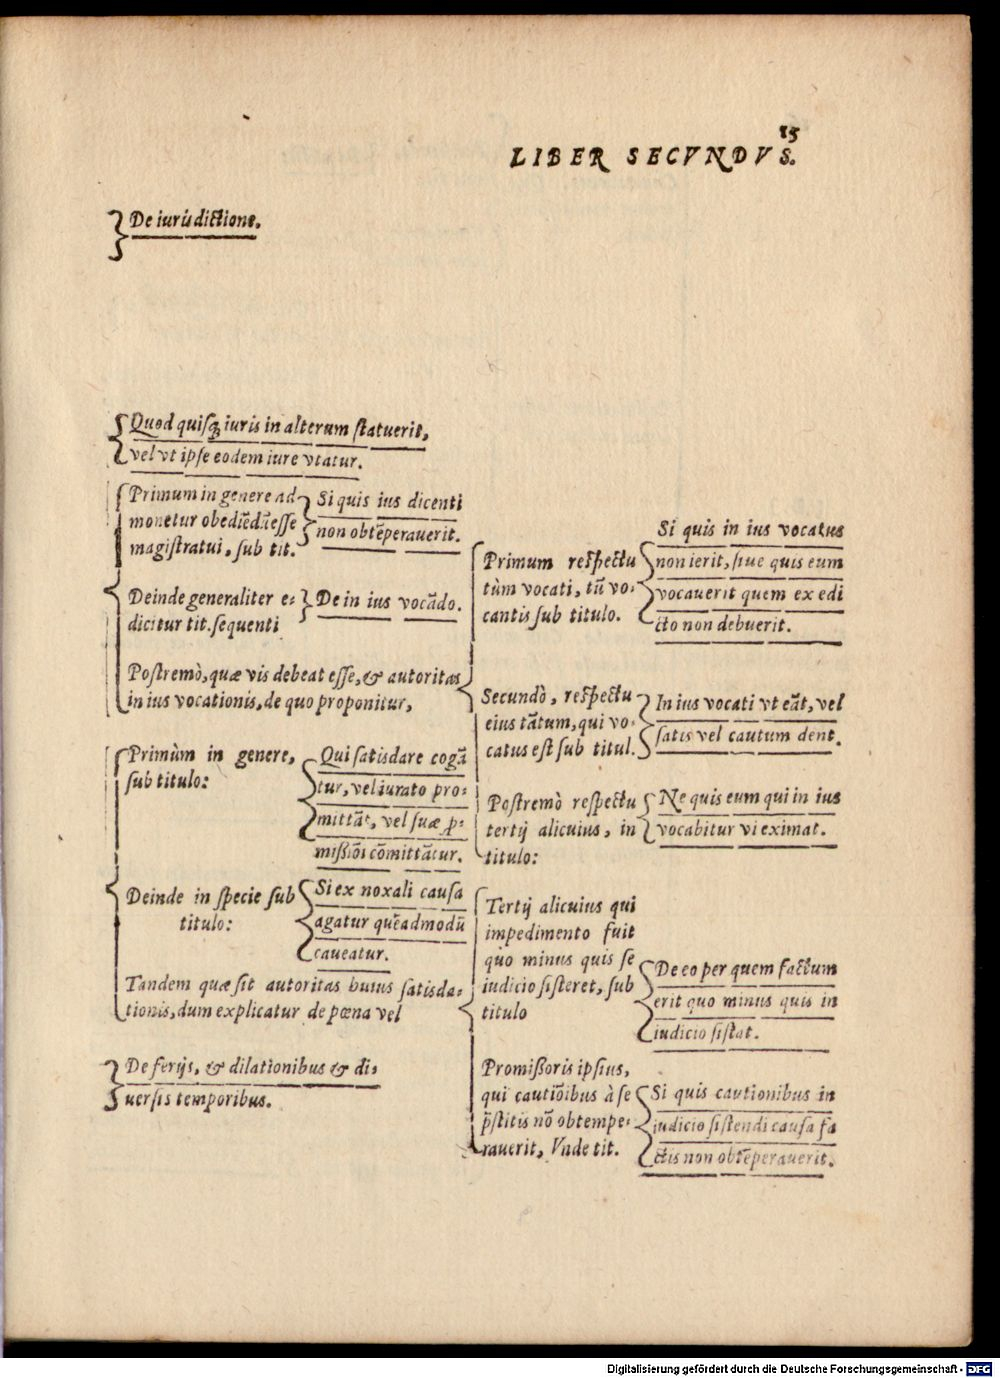 15
LIBER SECVNDVS.
De iurisdictione.
Quod quisq; iuris in alterum statuerit,
vel vt ipse eodem iure vtatur.
Primum in genere ad
monetur obediẽdũ esse
magistratui, sub tit.
Si quis ius dicenti
non obtẽperauerit.
Deinde generaliter e-
dicitur tit. sequenti
De in ius vocãdo.
Postremò, quæ vis debeat esse, & autoritas
in ius vocationis, de quo proponitur,
Primum respectu
tùm vocati, tũ vo-
cantis sub titulo.
Si quis in ius vocatus
non ierit, siue quis eum
vocauerit quem ex edi
cto non debuerit.
Secundò, respectu
eius tãtum, qui vo-
catus est sub titul.
In ius vocati vt eãt, vel
satis vel cautum dent.
Postremò respectu
tertij alicuius, in
titulo:
Ne quis eum qui in ius
vocabitur vi eximat.
Primùm in genere,
sub titulo:
Qui satisdare cogã
tur, vel iurato pro-
mittãt, vel suæ ꝓ-
mißiõi cõmittãtur.
Deinde in specie sub
titulo:
Si ex noxali causa
agatur quẽadmodũ
caueatur.
Tandem quæ sit autoritas huius satisda-
tionis, dum explicatur de pœna vel
Tertij alicuius qui
impedimento fuit
quo minus quis se
iudicio sisteret, sub
titulo
De eo per quem factum
erit quo minus quis in
iudicio sistat.
Promißoris ipsius,
qui cautiõibus à se
p̃stitis nõ obtempe-
rauerit, Vnde tit.
Si quis cautionibus in
iudicio sistendi causa fa
ctis non obtẽperauerit.
De ferijs, & dilationibus & di-
uersis temporibus.
Digitalisierung gefördert durch die Deutsche Forschungsgemeinschaft - DFG